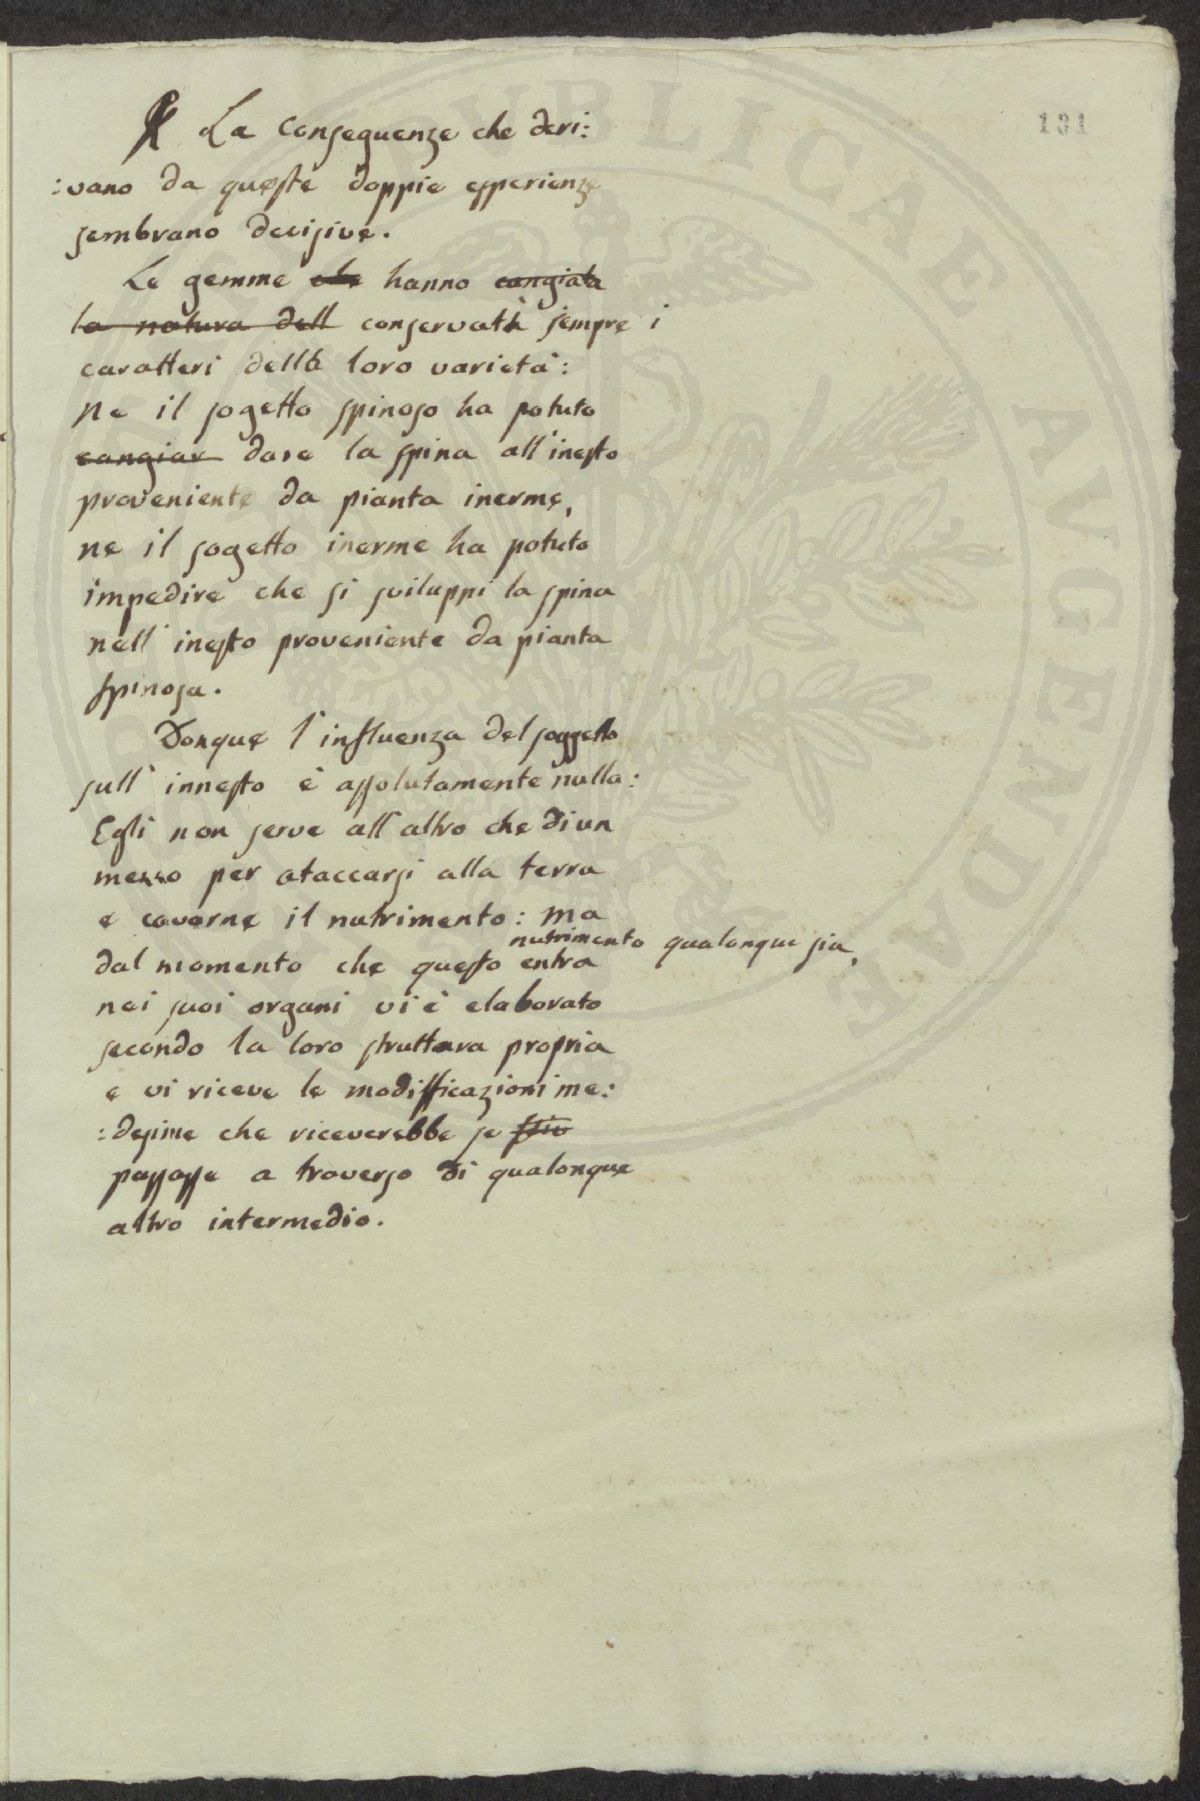 131
La Conseguenze che deri:
:vano da queste doppie esperienze
sembrano decisive.
Le gemme che hanno cangiata
la natura dell conservati sempre i
caratteri della loro varietà:
Ne il sogetto spinoso ha potuto
cangiar dare la spina all'inesto
proveniente da pianta inerme,
ne il sogetto inerme ha potuto
impedire che si sviluppi la spina
nell'inesto proveniente da pianta
spinosa.
Donque l'influenza del soggetto
sull'innesto è assolutamente nulla:
Egli non serve all'altro che di un
mezzo per ataccarsi alla terra
e cavarne il nutrimento: ma
nutrimento qualonque sia,
dal momento che questo entra
nei suoi organi vi è elaborato
secondo la loro struttura propria
e vi riceve le modifficazioni me:
:desime che riceverebbe se
passasse a traverso di qualonque
altro intermedio.